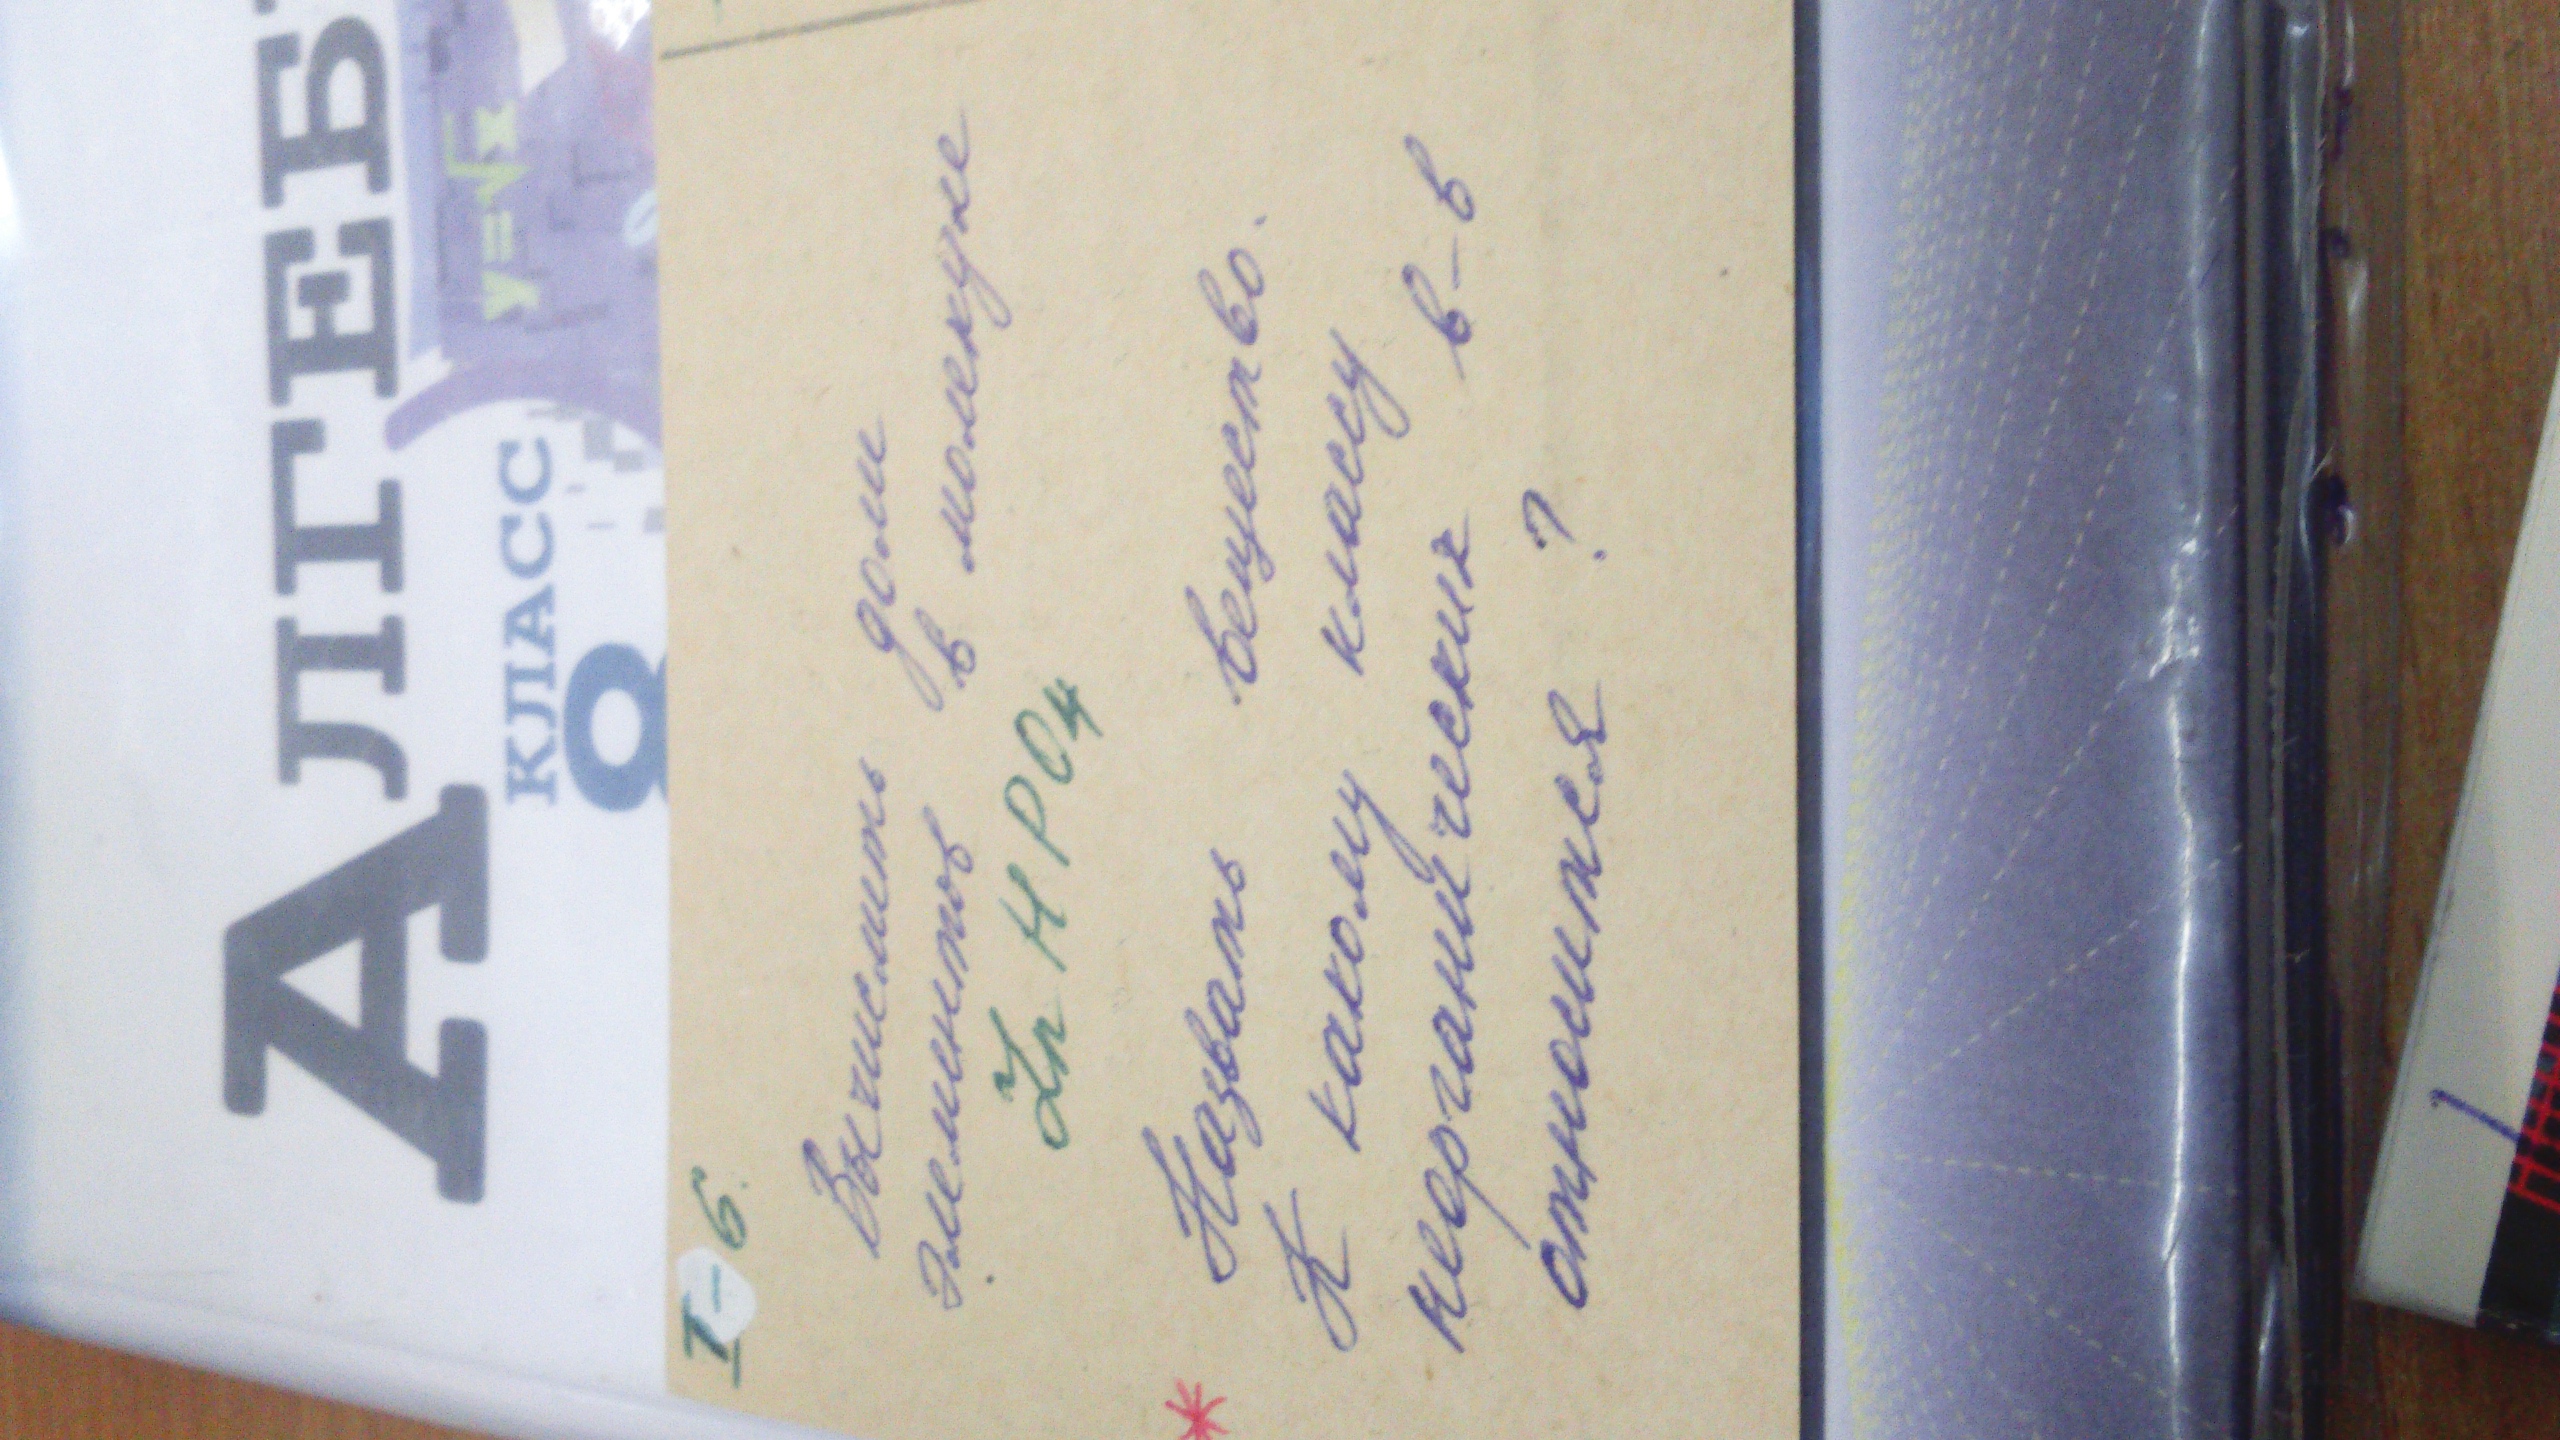 АЛГЕБ
y=√x
КЛАСС
8
I-6.
Вычислить доли
элементов в молекуле
ZnHPO4
* Назвать вещество.
К какому классу
неорганических в-в
относится ?
1